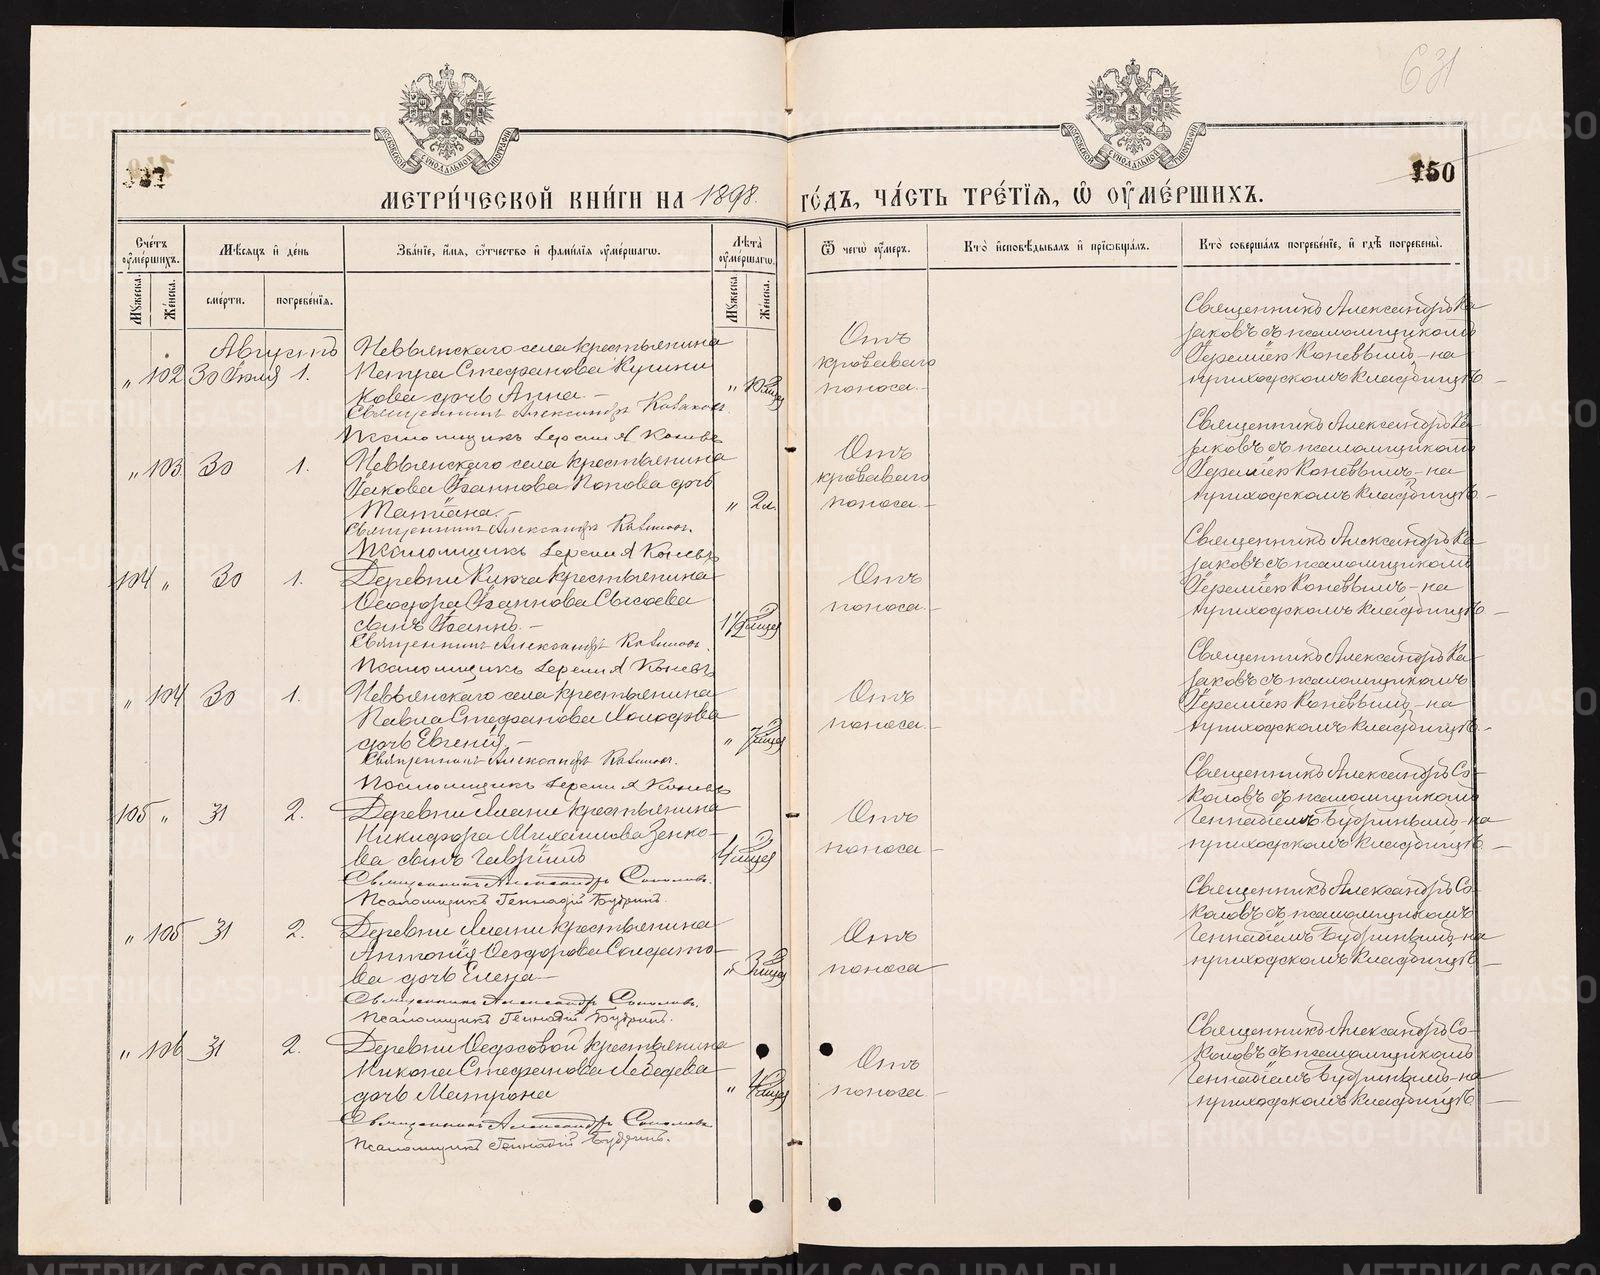 631
150
МЕТРИ́ЧЕСКОЙ КНИ́ГИ НА 1898. ГО́ДЪ, ЧА́СТЬ ТРЕ́ТІѦ, Ѽ ОУ҆МЕ́РШИХЪ.
Сче́тъ оу҆ме́ршихъ.
Мѣ́сяцъ и҆ де́нь
Зва́ніе, и҆́мя, ѻ҆́тчество и҆ фами́лія оу҆ме́ршагѡ.
Лѣ́та оу҆ме́ршагѡ.
Ѿ чегѡ̀ оу҆́меръ.
Кто̀ и҆сповѣ́дывалъ и҆ прїѡбща́лъ.
Кто̀ соверша́лъ погребе́ніе, и҆ гдѣ̀ погребены̀.
Му́жеска.
Же́нска.
сме́рти.
погребе́нїя.
Му́жеска
Же́нска.
Августъ
„ 102 30 Іюля 1.
Невьянскаго села крестьянина
Петра Стефанова Куники
кова дочь Анна. –
Священникъ Александръ Казаковъ.
Псаломщикъ Іеремія Коневъ
„ 10 мцев
Отъ
кроваваго
поноса. –
Священникъ Александръ Ка-
заковъ съ псаломщикомъ
Іереміею Коневымъ – на
приходскомъ кладбищѣ –
„ 103 30 1.
Невьянскаго села крестьянина
Іакова Іоаннова Попова дочь
Татіана. –
Священникъ Александръ Казаковъ.
Псаломщикъ Іеремія Коневъ
„ 2 л.
Отъ
кроваваго
поноса. –
Священникъ Александръ Ка-
заковъ съ псаломщикомъ
Іереміею Коневымъ – на
приходскомъ кладбищѣ –
104 „ 30 1.
Деревни Ключа крестьянина
Ѳеодора Іоаннова Сысоева
сынъ Іоаннъ. –
Священникъ Александръ Казаковъ.
Псаломщикъ Іеремія Коневъ
1 1/2 мцев
Отъ
поноса. –
Священникъ Александръ Ка-
заковъ съ псаломщикомъ
Іереміею Коневымъ – на
приходскомъ кладбищѣ –
„ 104 30 1.
Невьянскаго села крестьянина
Павла Стефанова Холодова
дочь Евгенія –
Священникъ Александръ Казаковъ.
Псаломщикъ Іеремія Коневъ
„ 7 мцев
Отъ
поноса. –
Священникъ Александръ Ка-
заковъ съ псаломщикомъ
Іереміею Коневымъ – на
приходскомъ кладбищѣ. –
105 „ 31 2.
Деревни Ялани крестьянина
Никифора Михаилова Зенко-
ва сынъ Гавріилъ
Священникъ Александръ Соколовъ.
Псаломщикъ Геннадій Будринъ.
4 мцев
Отъ
поноса –
Священникъ Александръ Со-
коловъ съ псаломщикомъ
Геннадіемъ Будринымъ – на
приходскомъ кладбищѣ –
„ 105 31 2.
Деревни Ялани крестьянина
Антонія Ѳеодорова Солдато-
ва дочь Елена –
Священникъ Александръ Соколовъ.
Псаломщикъ Геннадій Будринъ.
„ 3 мцев
Отъ
поноса –
Священникъ Александръ Со-
коловъ съ псаломщикомъ
Геннадіемъ Будринымъ – на
приходскомъ кладбищѣ –
„ 106 31 2.
Деревни Ѳедосовой крестьянина
Никона Стефанова Лебедева
дочь Матрона
Священникъ Александръ Соколовъ
Псаломщикъ Геннадій Будринъ.
„ 4 мцев
Отъ
поноса. –
Священникъ Александръ Со-
коловъ съ псаломщикомъ
Геннадіемъ Будринымъ – на
приходскомъ кладбищѣ. –